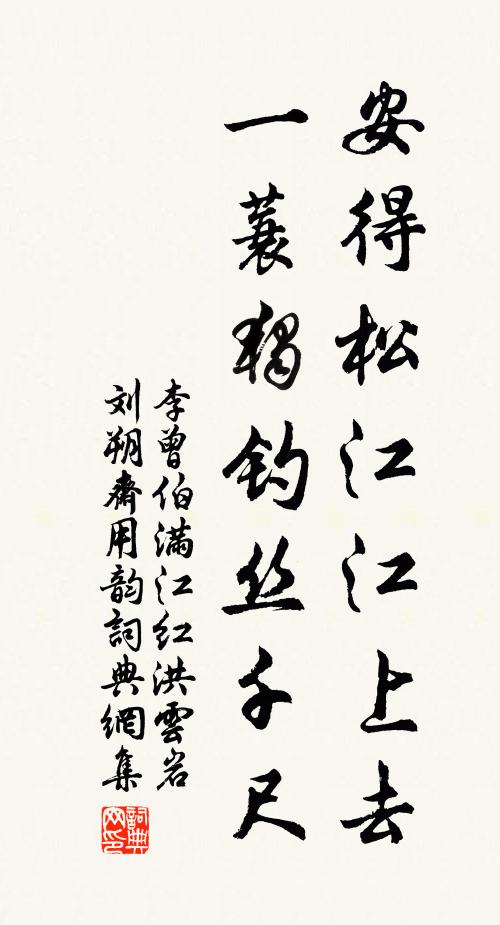 安得松江江上去
一蓑獨钓丝千尺
李曾伯满江红洪雲岩
刘朔齋用韵詞典網集
詞典网印